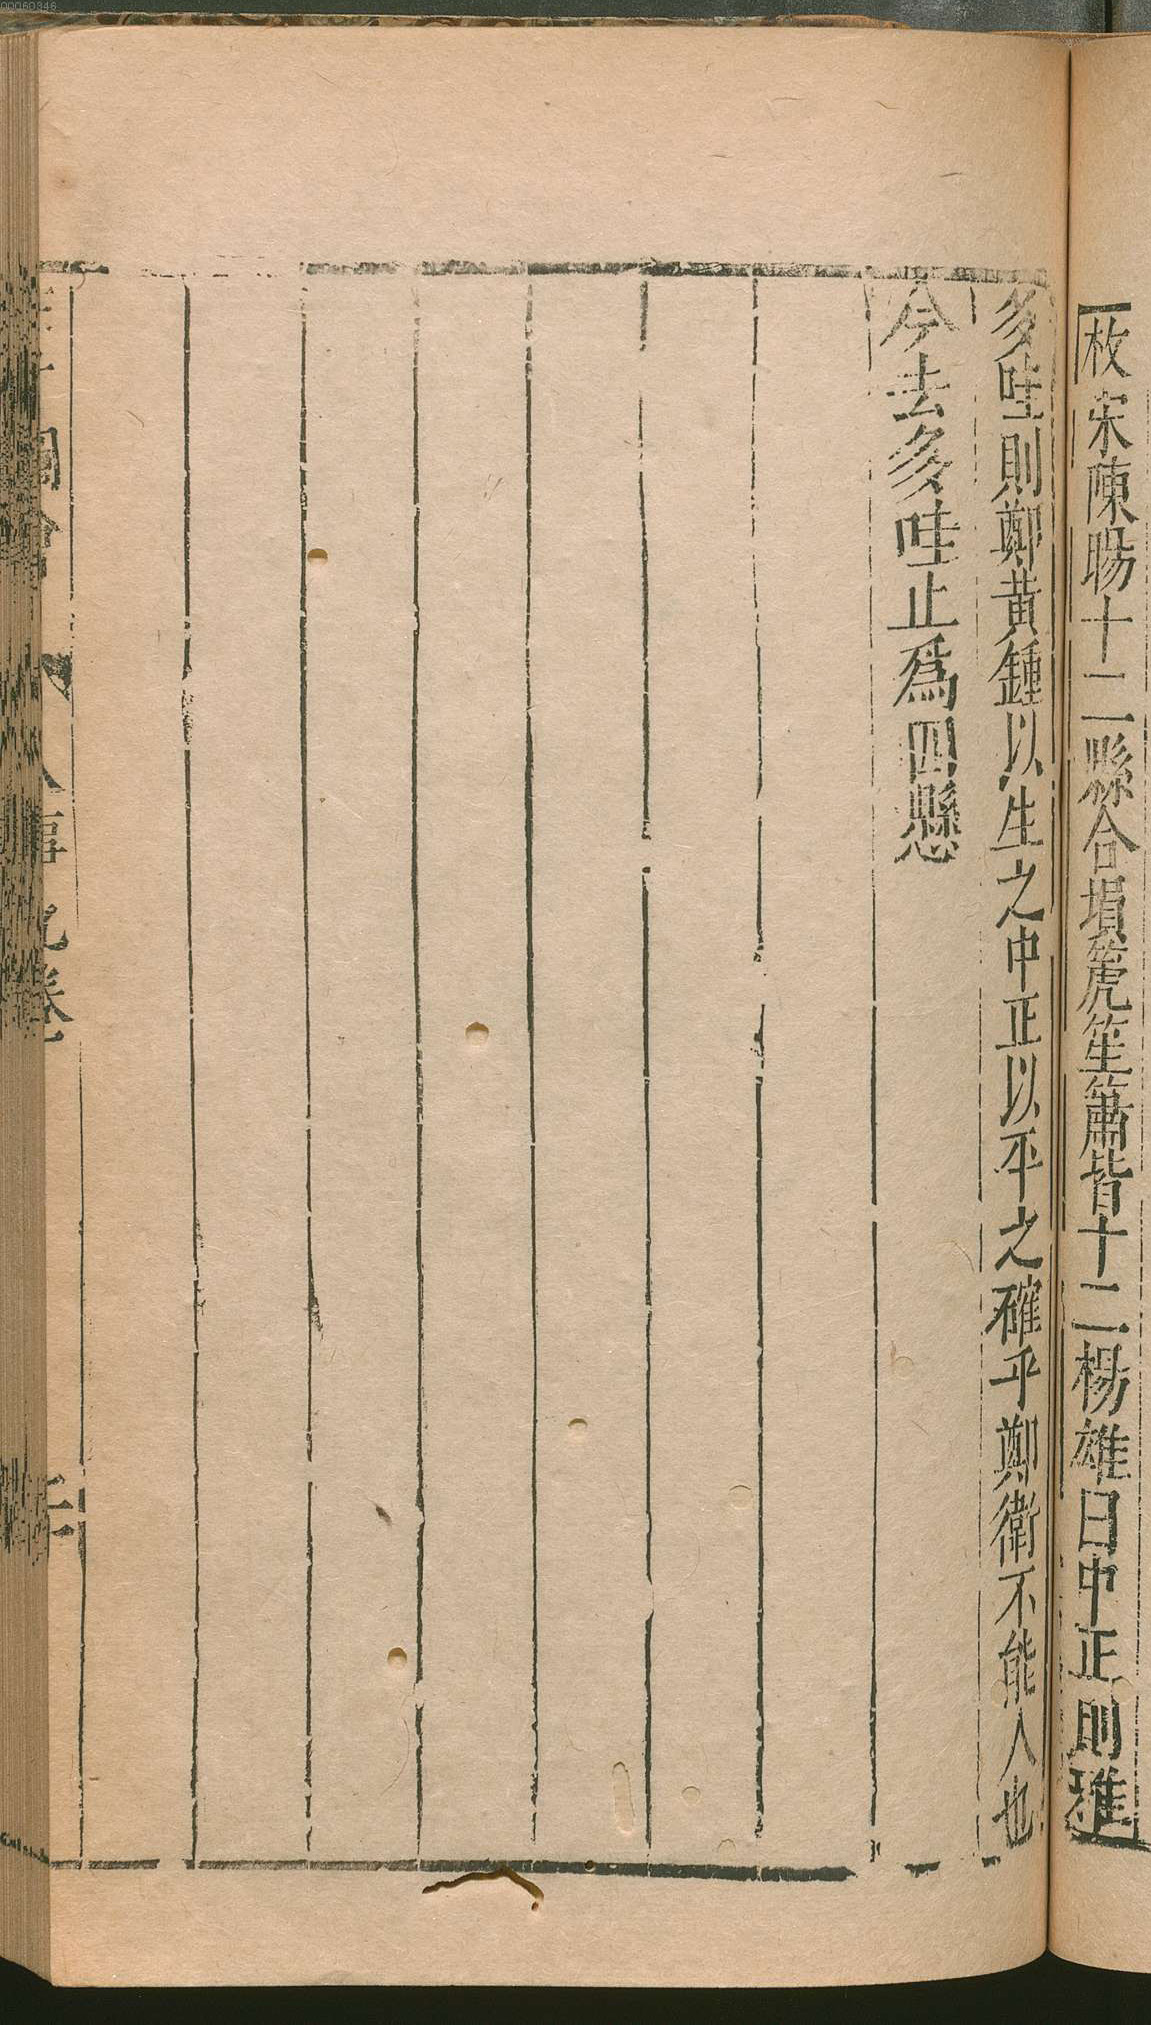 枚宋陳暘十二縣合塤箎笙簫皆十二楊雄曰中正則雅
多哇則鄭黃鍾以生之中正以平之確乎鄭衛不能入也
今去多哇止爲四懸
圖會
人事九卷
00060348